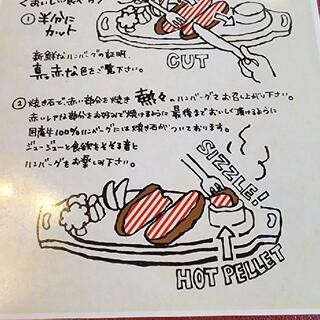 くおいしい食べ方〉
① 半分に
カット
新鮮なハンバーグの証明、
真っ赤な色をご覧下さい。
CUT
② 焼き石で、赤い部分を焼き 熱々のハンバーグをお召し上がり下さい。
赤いレアな部分をお好みで焼けるように最後までおいしく頂けるように
国産牛100%ハンバーグには焼き石がついております。
ジュージューと食欲をそそる音と
ハンバーグをお楽しみ下さい。
SIZZLE!!
HOT PELLET